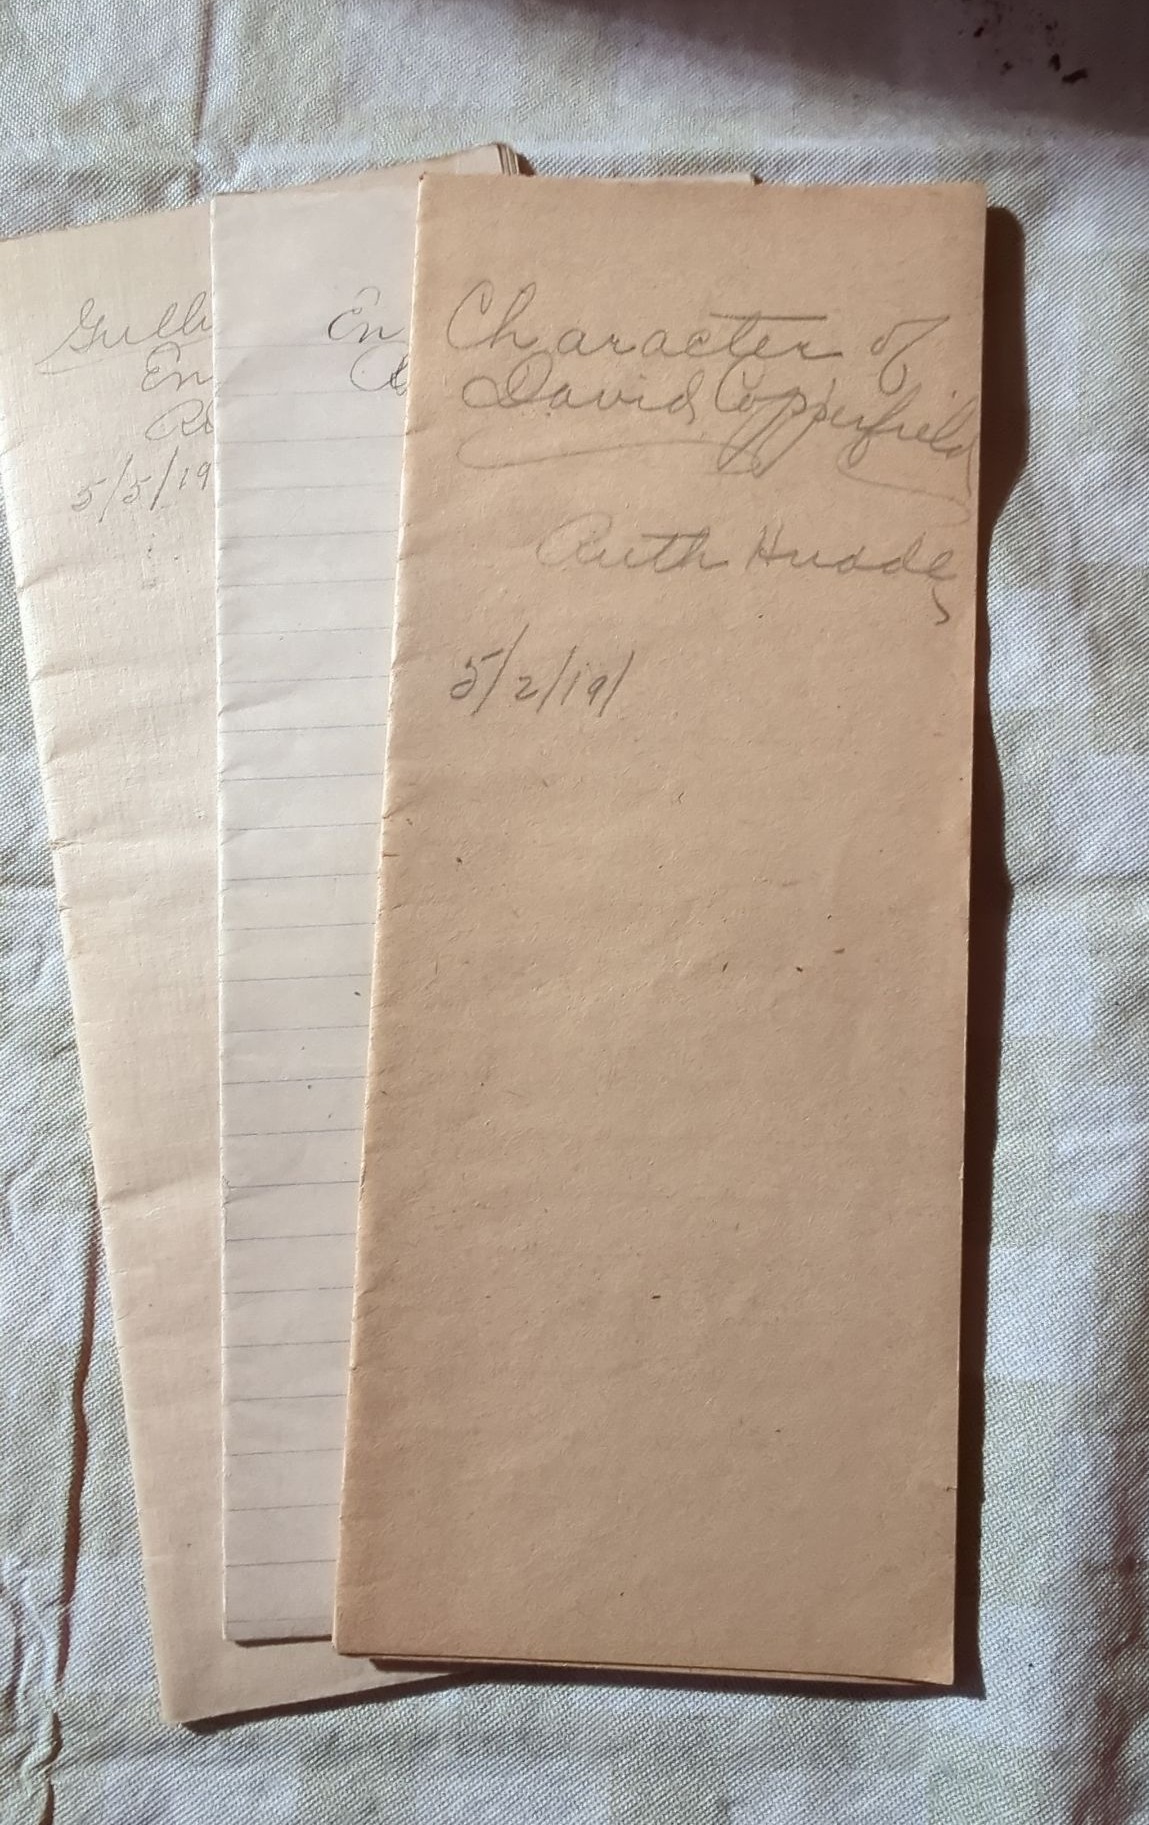 Gulli
En
5/5/19
En
Character of
David Copperfield
Ruth
5/2/19/